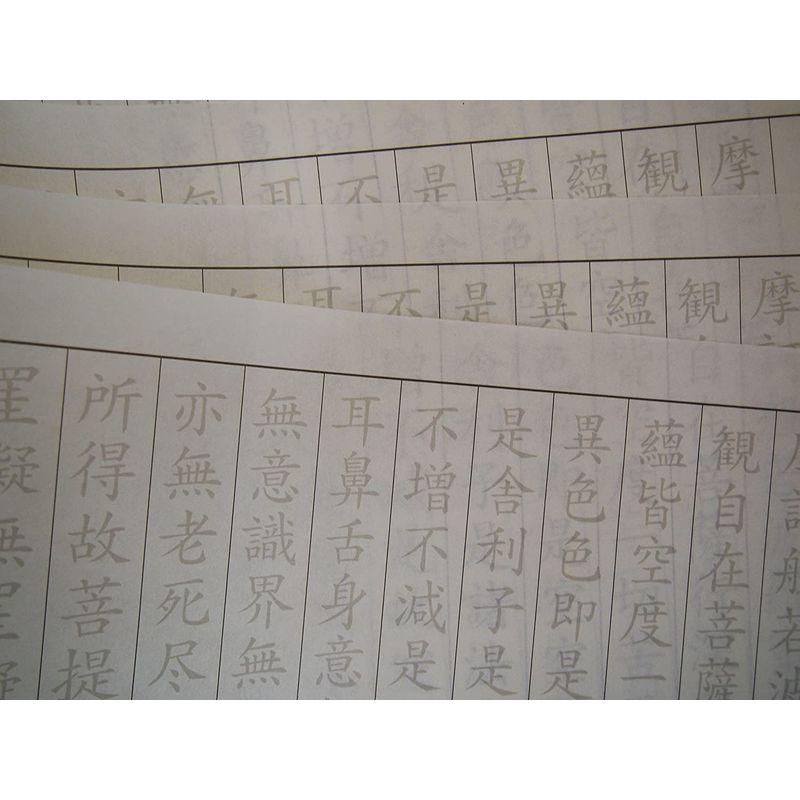 摩
観
蘊
異
是
不
耳
無
摩
観
蘊
異
是
不
耳
無
摩訶般若波
観自在菩薩
蘊皆空度一
異色色即是
是舎利子是
不増不減是
耳鼻舌身意
無意識界無
亦無老死尽
所得故菩提
罣礙無罣礙